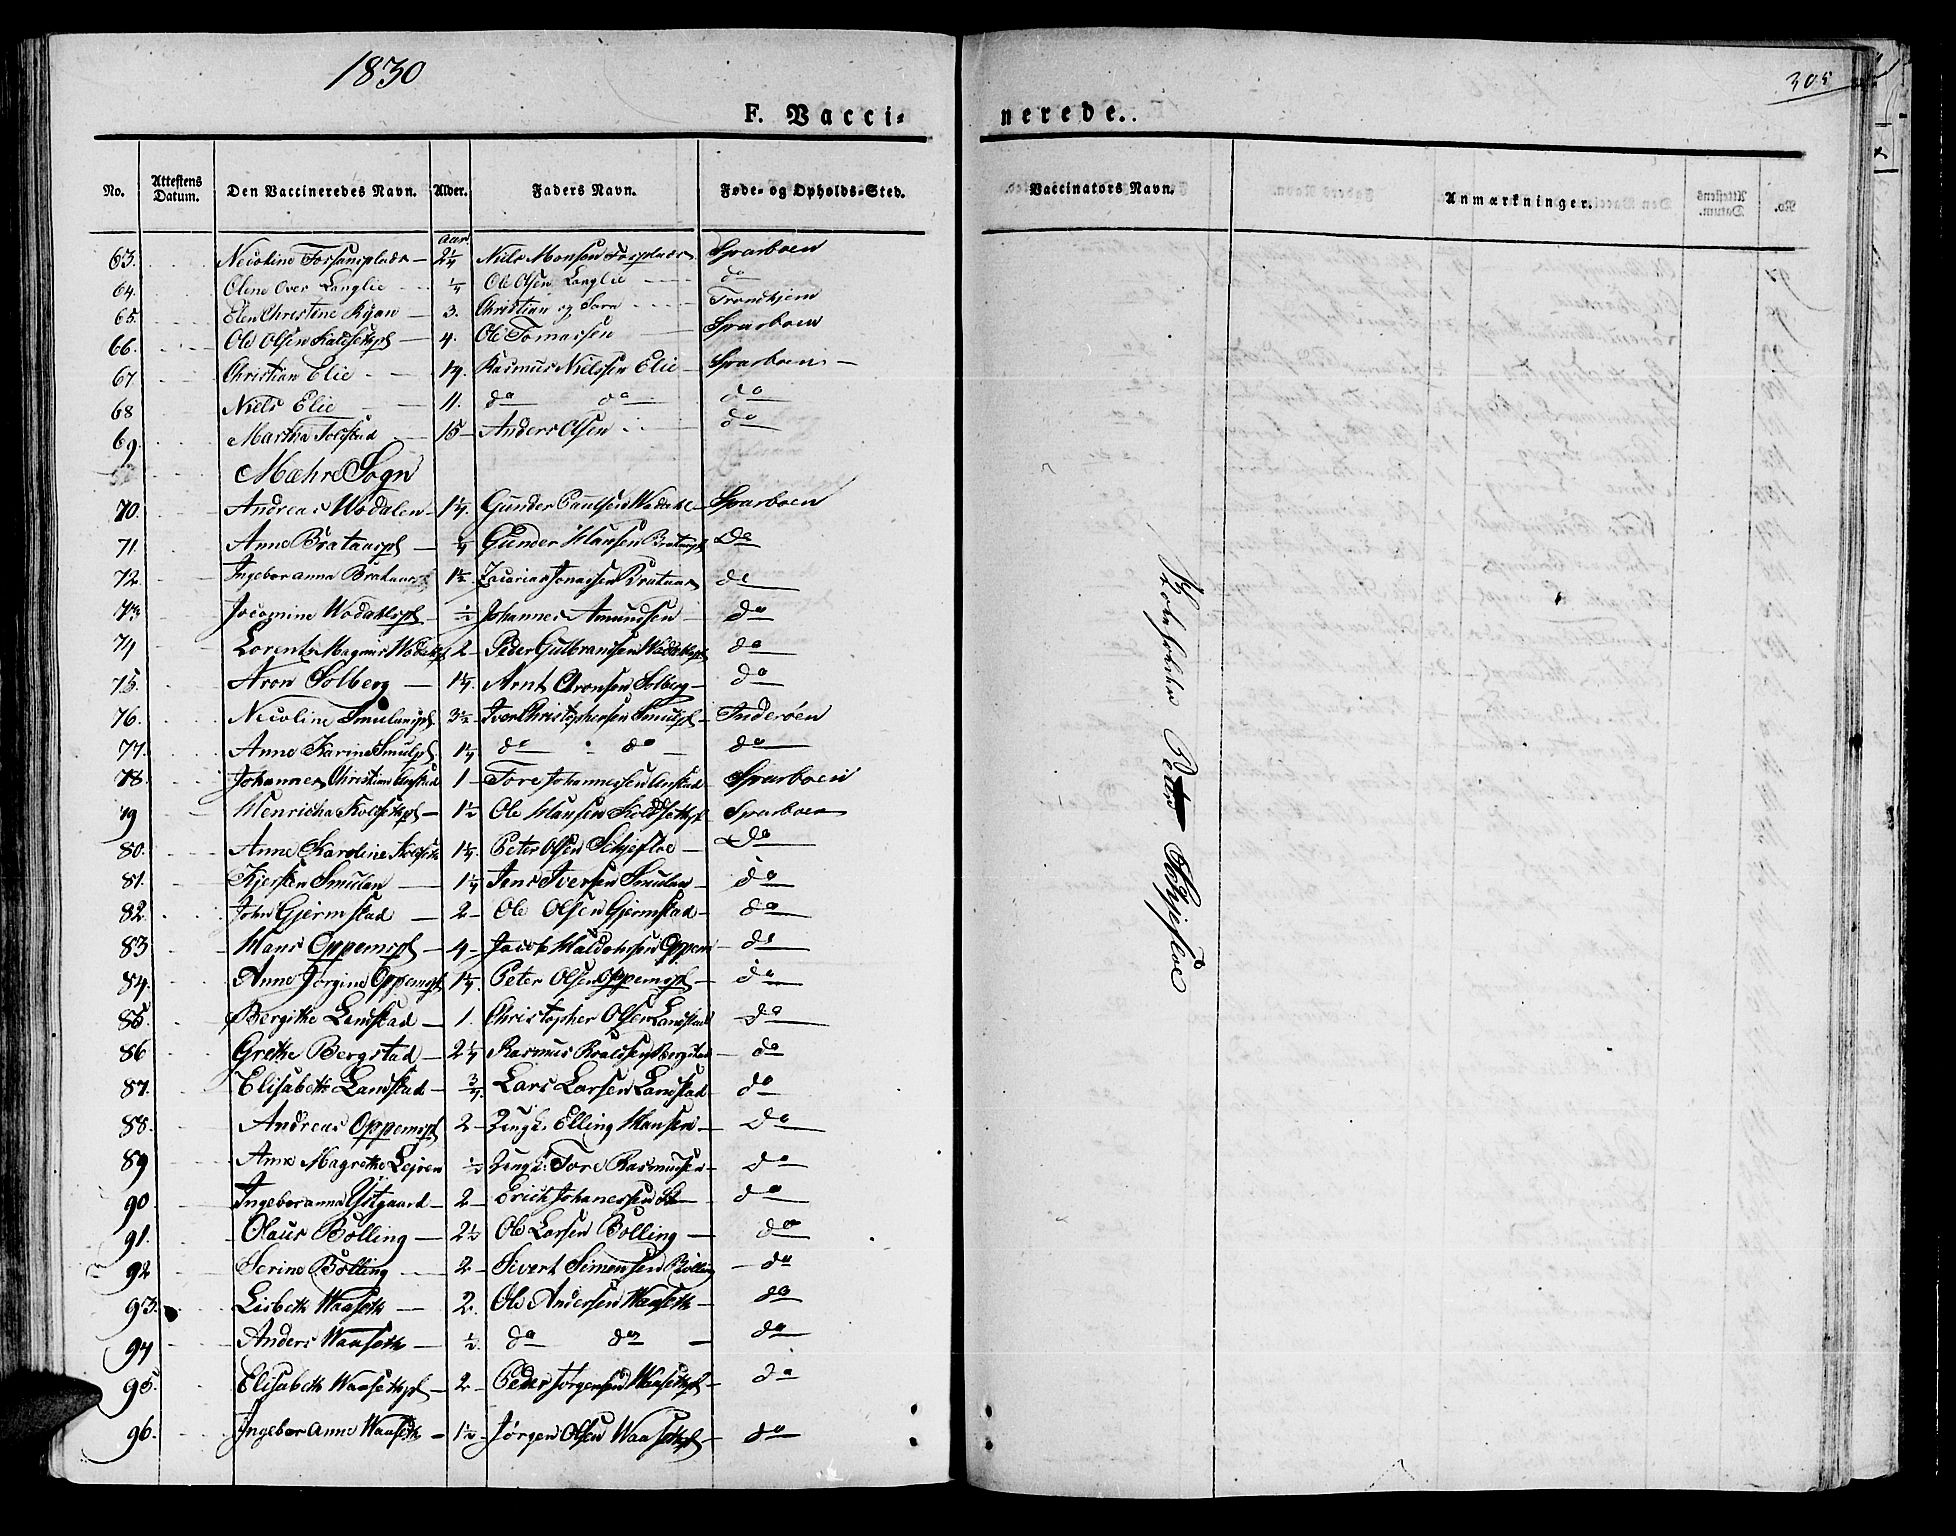 1830
305
F. Vacci-
nerede.
No. Attestens Datum. Den Vaccineredes Navn. Alder. Faders Navn. Føde- og Opholds-Sted.
Vaccinators Navn. Anmærkninger.
Aar
63. Necoline Fossumsplads 2 1/4 Niels Monsen Sparboen
64. Oline Over Langlie 1/4 Ole Olsen Langlie do
65. Elen Christine Ryan 3. Christian og Sara Trondhjem
66. Ole Olsen 4. Ole Tomassen Sparboen
67 Christian Elie 14. Rasmus Nielssen Elie Sparboen
68 Niels Elie 11. do do do
69 Martha 15 Anders Olsen do
Mæhre Sogn
70. Andreas Wodalen 1 1/4. Gunder Paulsen Sparboen
71. Anne Bratauspl 3/4 Gunder Hansen Do
72. Ingeboranna 1 1/2 Zacarias Jonassen Brataas do
73. Jocomine 1/2 Johannes Amundsen do
74 Lorents Magnus 2 Peder Gulbrandsen do
75. Aron Solberg 1 1/4. Arnt Aronsen Solberg do
76. Necoline Smulanspl 3 1/2 Iver Christophersen Smulspl Inderöen
77. Anne Karine Smulspl 1 1/4 do do do
78. Johannes Christian 1 Tore Johannessen Sparboen
79 Henricha 1 1/2 Ole Hansen Sparboen
80. Anne Karoline 1 1/4. Peter Olsen Schjefloe Do
81. Kjersten Smulan 1 1/4 Jens Iversen Smulan do
82. John Gjermstad 2 Ole Olsen Gjermstad do
83 Hans Oppemspl 4 Jacob Haldorsen Oppem do
84. Anne Jørgine Oppemspl 1 1/4. Peter Olsen Oppemspl do
85. Bergithe Landstad 1. Christopher Olsen Landstad do
86 Grethe Bergstad 2 1/4 Rasmus Roaldsen Bergstad do
87. Elisabeth Landstad 3/4. Lars Larsen Landstad do
88. Andreas Oppemspl 2 Ungk. Elling Hansen do
89 Anne Magrethe Lejren 1/2 Ungk. Tore Rasmussen do
90 Ingeboranna Ystgaard 2 Erich Johanessen do
91. Olaus Bolling 2 1/2 Ole Larsen Bolling do
92 Serine Bolling 2 Sivert Simonsen Bolling do
93. Lisbeth Waaseth 2. Ole Andersen Waaseth do
94 Anders Waaseth 1/2. do do do
95. Elisabeth Waasethpl 2 Peder Jørgensen Waasethpl do
96. Ingebor Anne Waaseth 1 1/2 Jørgen Olsen Waasethpl do
Peter Schjefloe